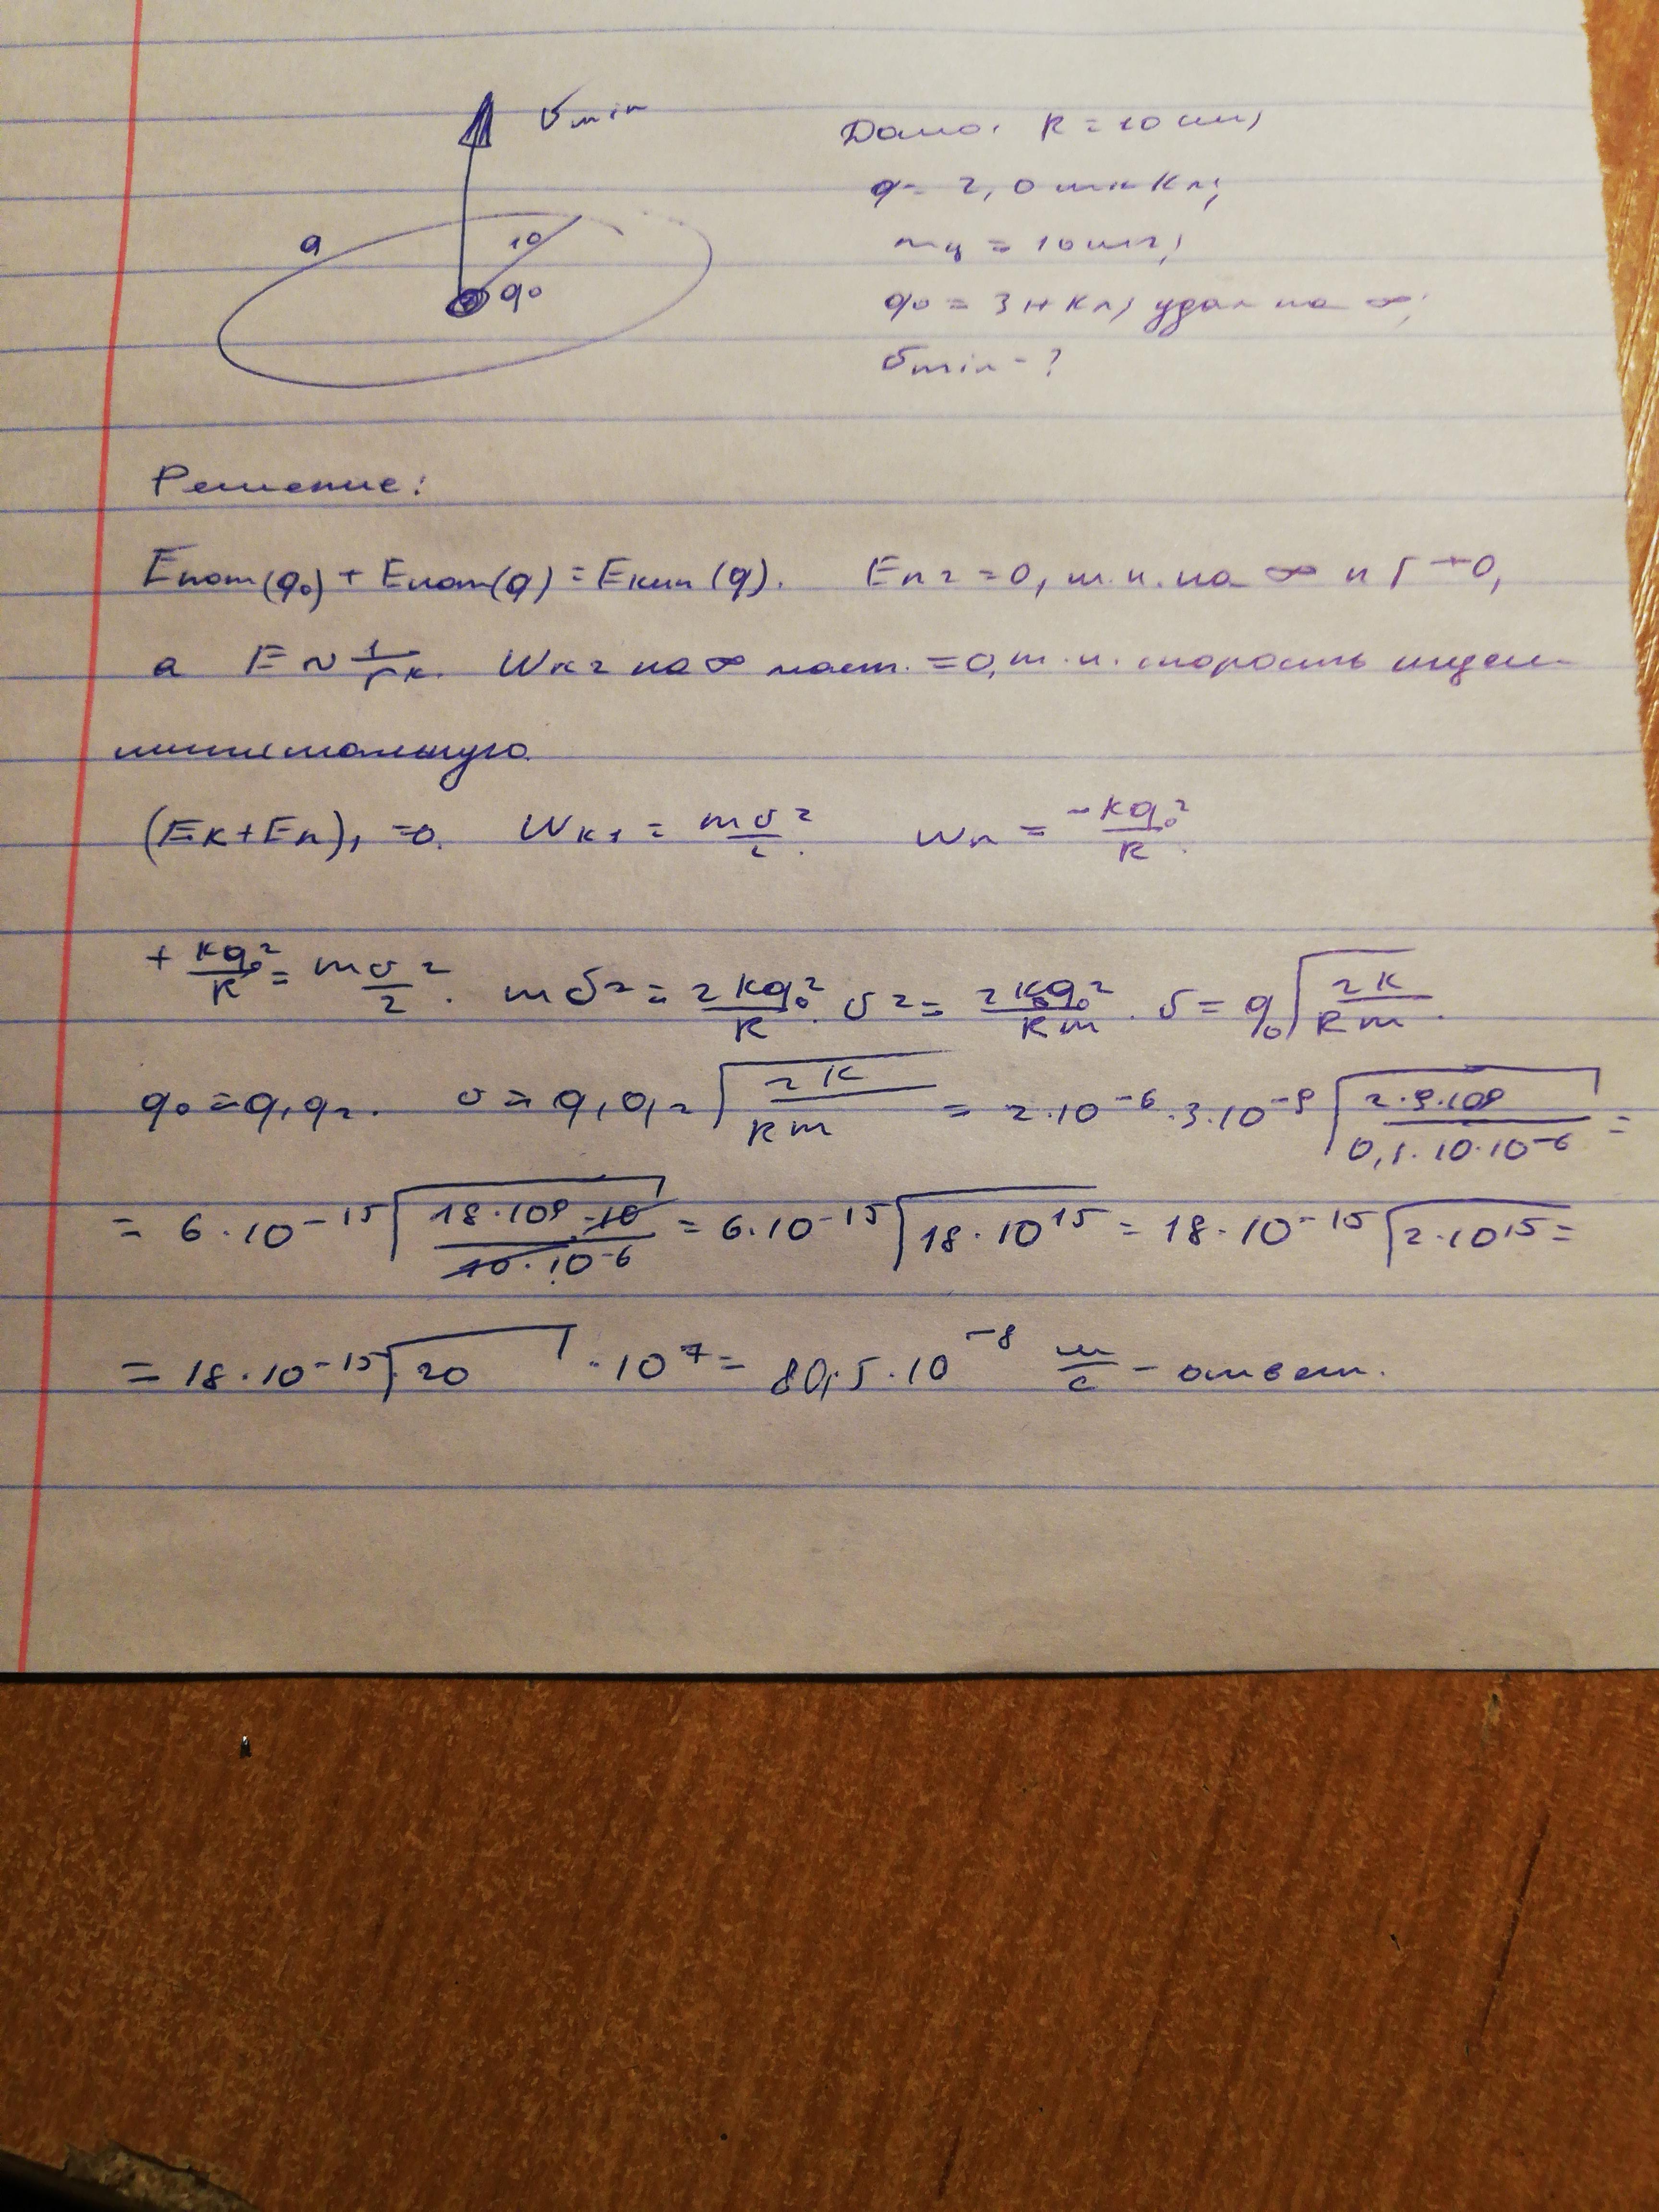 υmin
Дано: R = 10 см;
q = 2,0 мкКл;
q 10
mч = 10 мг;
q₀
q₀ = 3 нКл; удал на ∞;
υmin - ?
Решение:
Eпот(q₀) + Eпот(q) = Eкин(q). Eп2 = 0, т.к. на ∞ п Г → 0,
а E ~ 1/rк. Wк2 на ∞ = 0, т.к. скорость ищем
минимальную.
(Eк + Eп)₁ = 0. Wк1 = mυ²/2. Wп = -kq₀²/R.
+ kq₀²/R = mυ²/2. mυ² = 2kq₀²/R. υ² = 2kq₀²/Rm. υ = q₀√(2k/Rm).
q₀ = q₁q₂. υ = q₁q₂√(2k/Rm) = 2·10⁻⁶·3·10⁻⁹√(2·9·10⁹/0,1·10·10⁻⁶) =
= 6·10⁻¹⁵√(18·10⁹·10/10·10⁻⁶) = 6·10⁻¹⁵√(18·10¹⁵) = 18·10⁻¹⁵√(2·10¹⁵) =
= 18·10⁻¹⁵√20 · 10⁷ = 80,5·10⁻⁸ м/с - ответ.